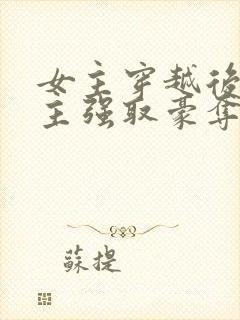 女主穿越後
主强取豪奪
蘇提